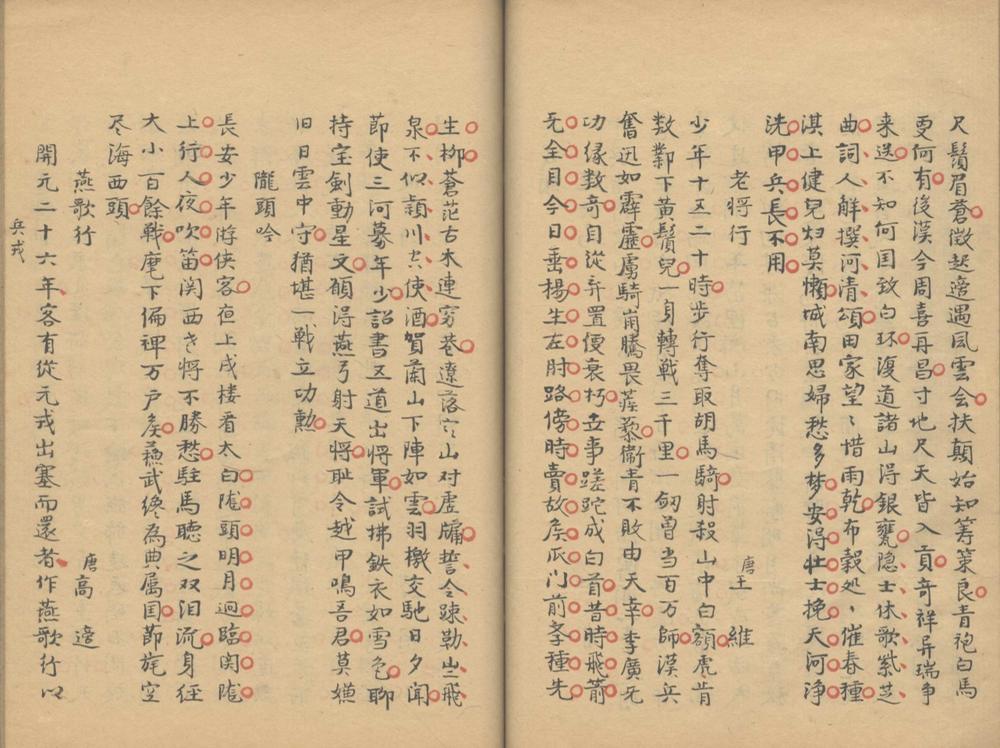 尺鬚眉蒼徵起適遇風雲会扶顛始知筹策良青袍白馬
更何有後漢今周喜再昌寸地尺天皆入貢奇祥异瑞争
来送不知何国致白环復道諸山得銀甕隐士休歌紫芝
曲詞人解撰河清頌田家望〻惜雨乾布穀処〻催春種
淇上健兒归莫懶城南思婦愁多梦安得壮士挽天河净
洗甲兵長不用
老将行
唐王維
少年十五二十時步行奪取胡馬騎射殺山中白額虎肯
数鄴下黄鬚兒一身轉戰三千里一劒曾当百万師漢兵
奮迅如霹靂虜騎崩騰畏蒺藜衛青不敗由天幸李廣无
功缘数奇自從弃置便衰朽世事蹉跎成白首昔時飛箭
无全目今日垂楊生左肘路傍時賣故侯瓜门前李種先
生柳蒼茫古木連穷巷遼落寒山对虚牖誓令踈勒出飛
泉不似潁川空使酒賀蘭山下陣如雲羽檄交馳日夕聞
節使三河募年少詔書五道出将軍試拂鉄衣如雪色聊
持宝剑動星文願得燕弓射天将耻令越甲鳴吾君莫嫌
旧日雲中守猶堪一戰立功勲
隴頭吟
長安少年游俠客夜上戍楼看太白隴頭明月迥臨関隴
上行人夜吹笛関西老将不勝愁駐馬聽之双泪流身経
大小百餘戰麾下偏裨万户侯蘓武纔為典属国節旄空
尽海西頭
燕歌行
唐高適
開元二十六年客有從元戎出塞而還者作燕歌行以
兵戎